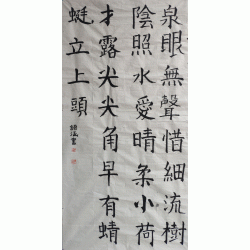 泉眼無聲惜細流樹
陰照水愛晴柔小荷
才露尖尖角早有蜻
蜓立上頭